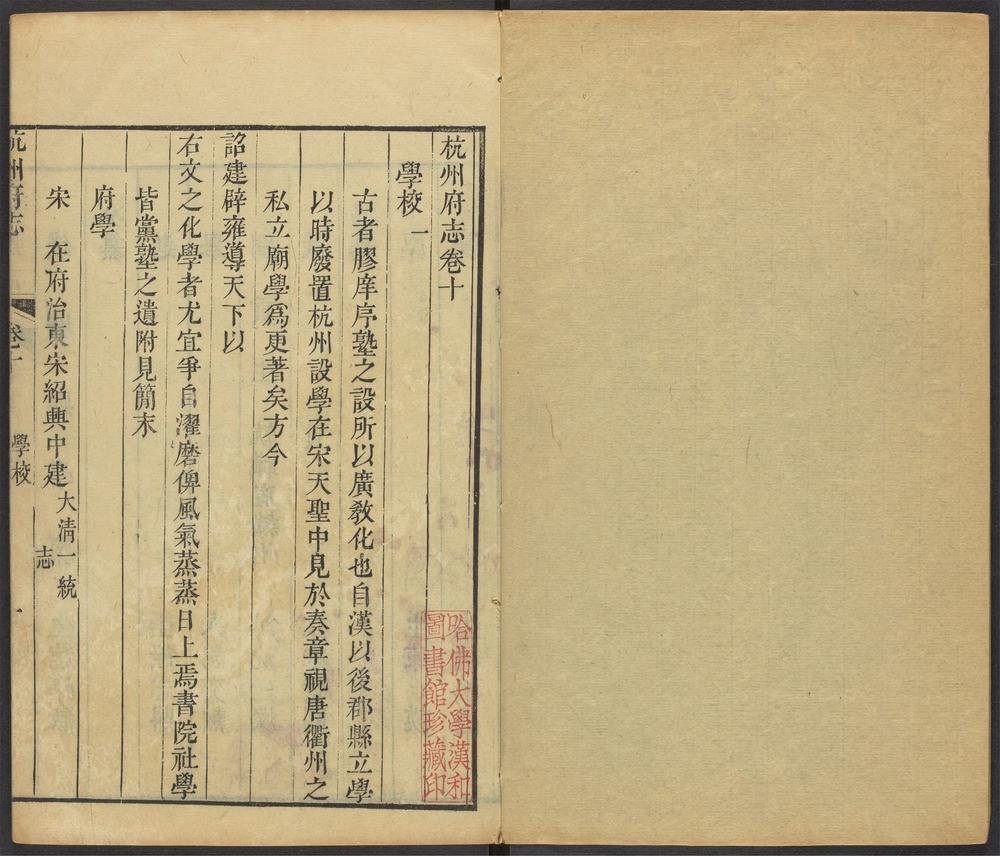 杭州府志卷十
學校一
古者膠庠序塾之設所以廣教化也自漢以後郡縣立學
以時廢置杭州設學在宋天聖中見於奏章視唐衢州之
私立廟學爲更著矣方今
詔建辟雍導天下以
右文之化學者尤宜爭自濯磨俾風氣蒸蒸日上焉書院社學
皆黨塾之遺附見簡末
府學
宋 在府治東宋紹興中建大清一統
志
杭州府志 卷十 學校 一
哈佛大學漢和
圖書館珍藏印